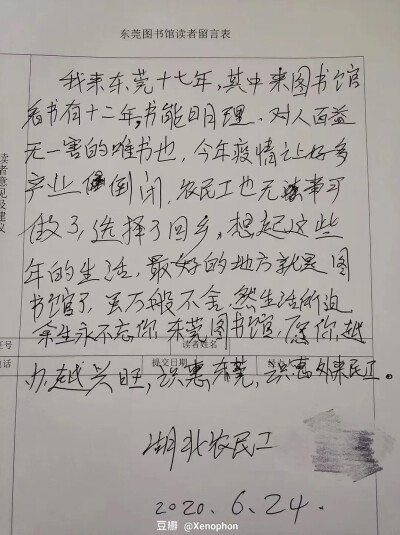 东莞图书馆读者留言表
我来东莞十七年,其中来图书馆
看书有十二年,书能明理,对人百益
无一害的唯书也,今年疫情让好多
产业倒闭,农民工也无事可
做了,选择了回乡,想起这些
年的生活,最好的地方就是图
书馆了,万般不舍,然生活所迫,
余生永不忘你,东莞图书馆,愿你越
办越兴旺,识惠东莞,识惠外来民工。
读者意见及建议
证号
读者姓名
电话
提交日期
湖北农民工
2020.6.24.
豆瓣 @Xenophon